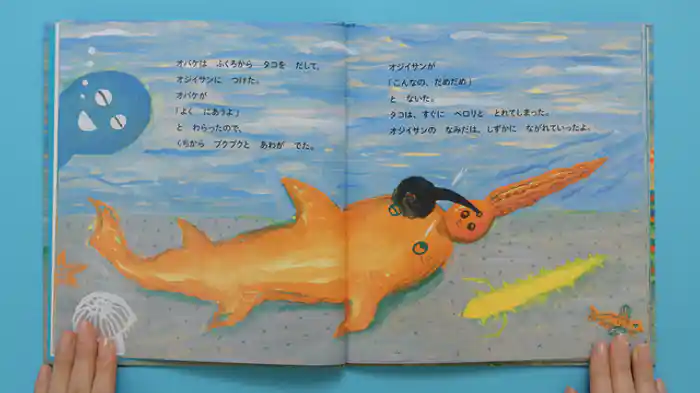 オバケは　ふくろから　タコを　だして、
オジイサンに　つけた。
オバケが
「よく　にあうよ」
と　わらったので、
くちから　ブクブクと　あわが　でた。
オジイサンが
「こんなの、だめだめ」
と　ないた。
タコは、すぐに　ペロリと　とれてしまった。
オジイサンの　なみだは、しずかに　ながれていったよ。